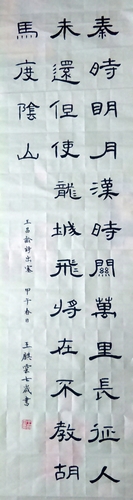 秦時明月漢時關萬里長征人
未還但使龍城飛將在不教胡
馬度陰山
王昌齡詩出塞 甲午春日
王麒雲七歲書